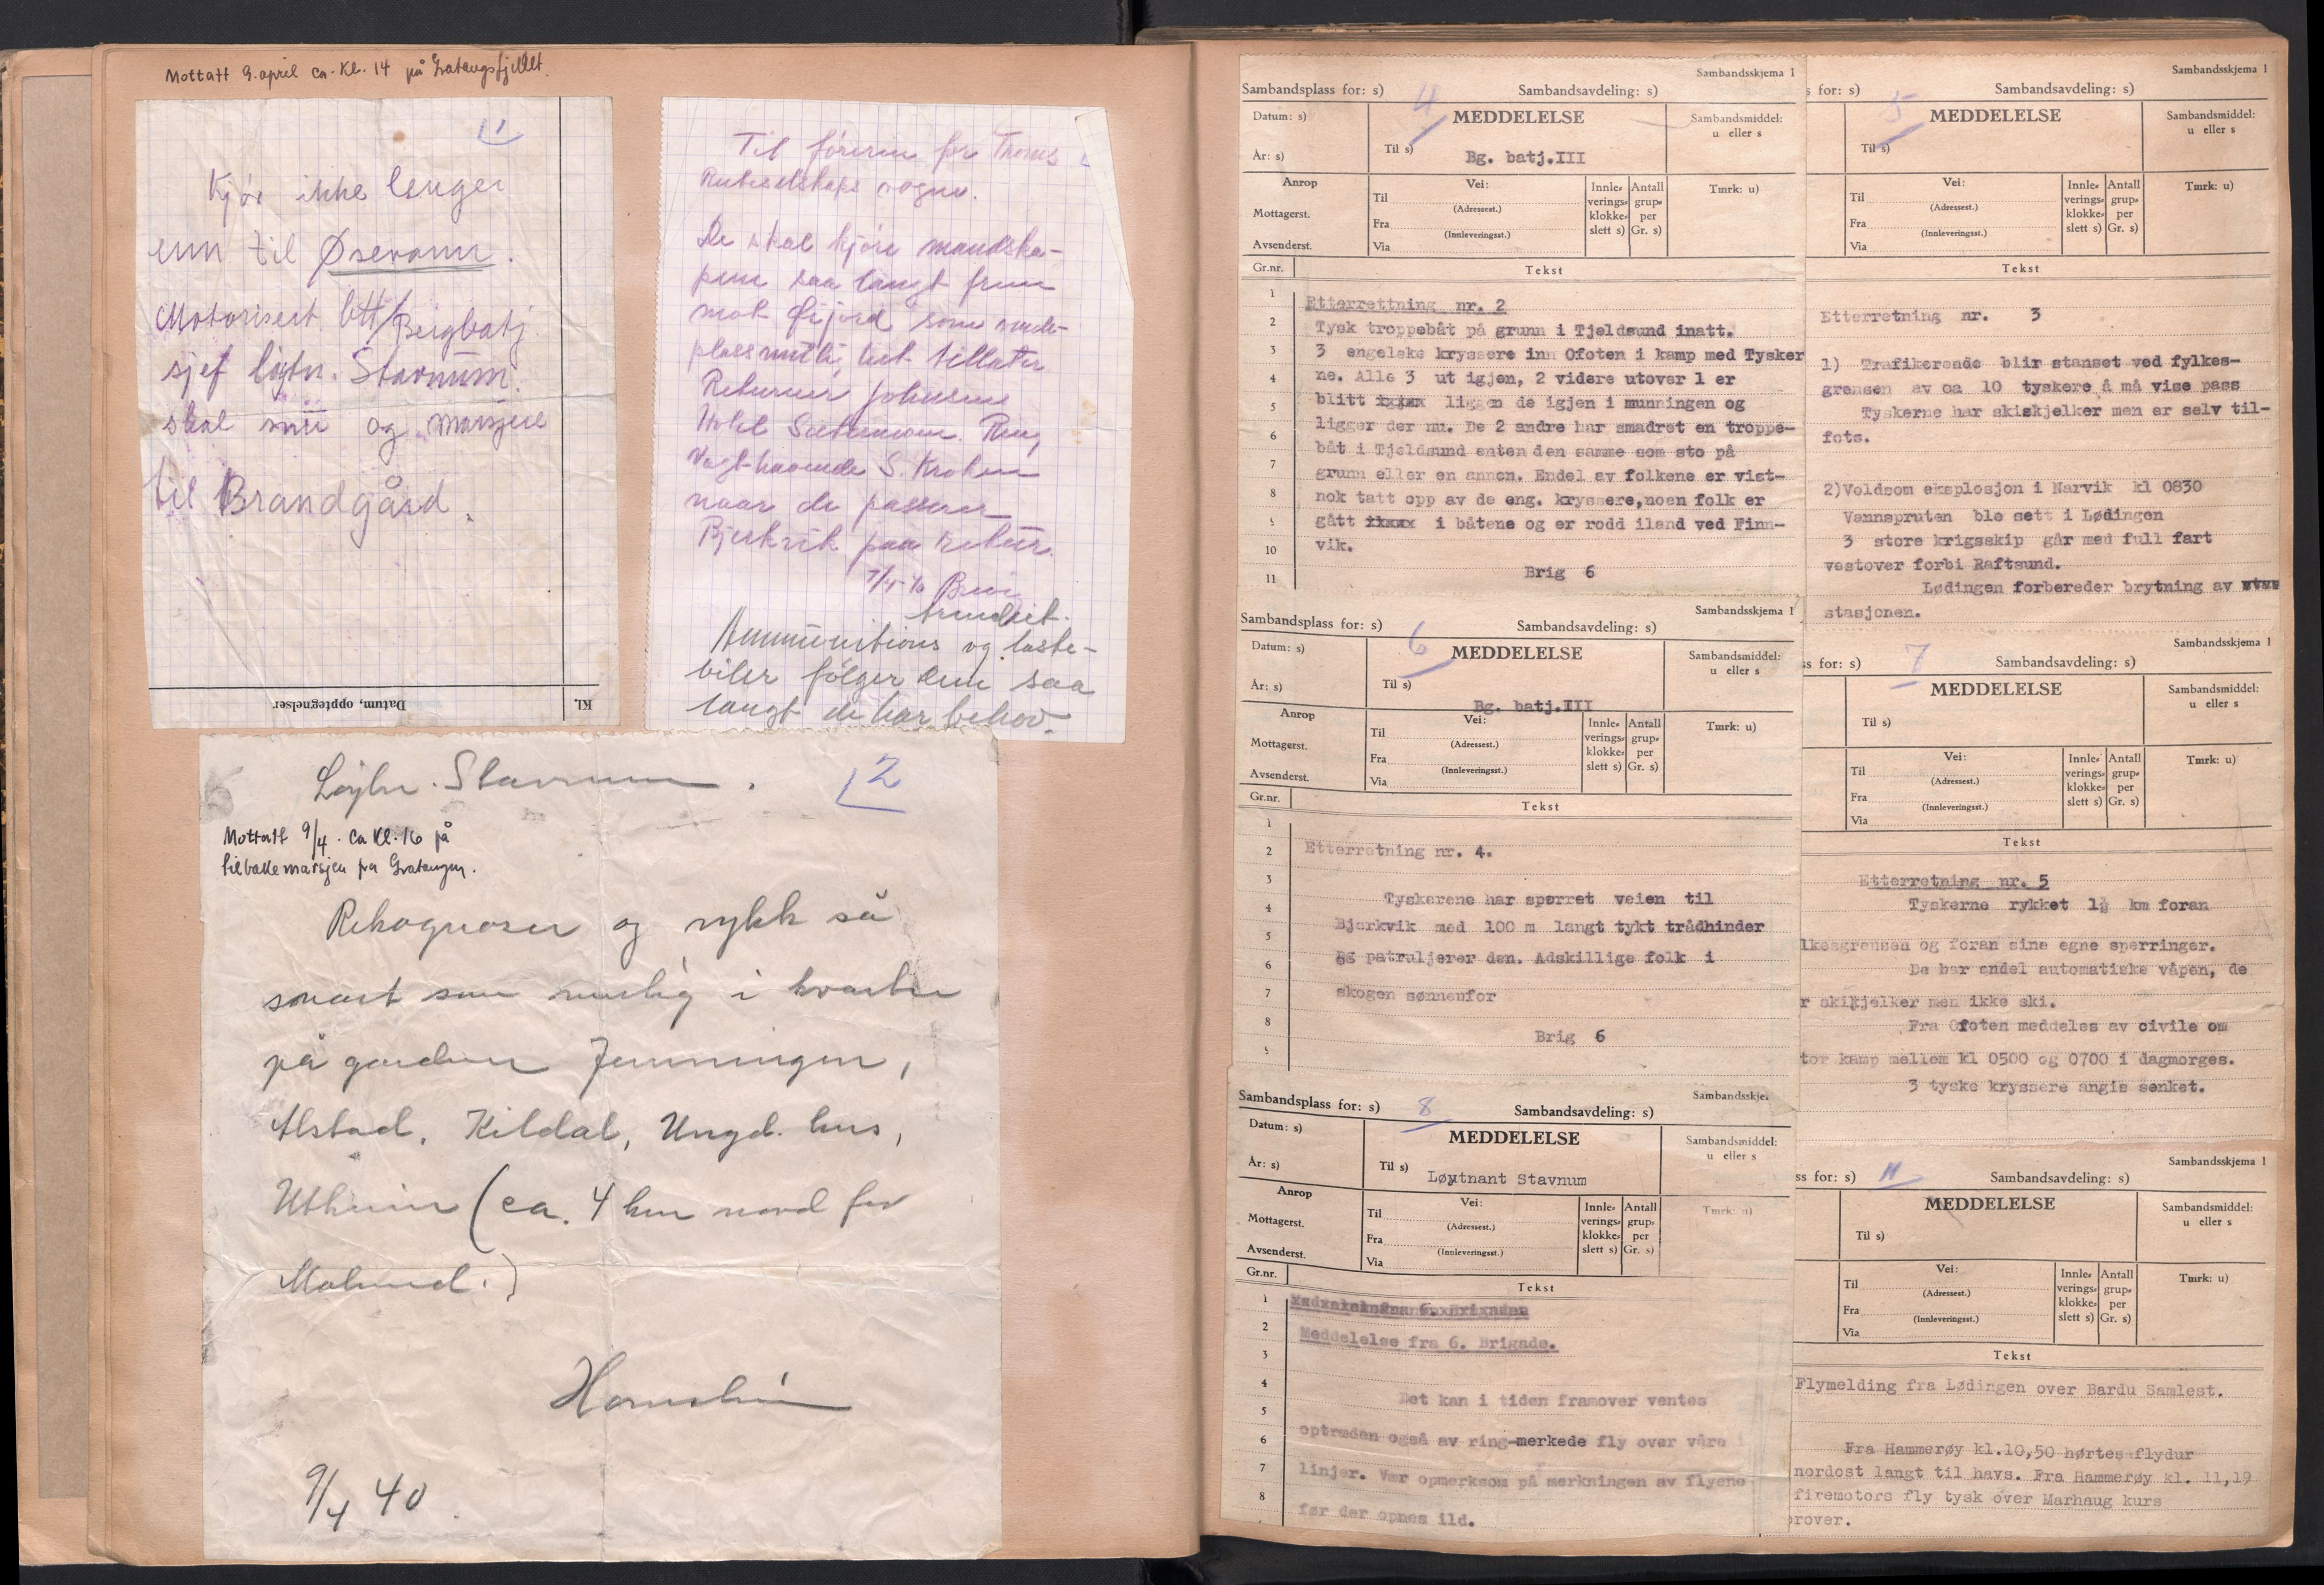 Mottatt 9. april ca. kl. 14 på Gratangsfjellet.
1
Kjør ikke lenger
enn til Øsevann.
Motorisert btt/Bergbatj.
sjef løytn. Stavnum.
skal snu og marsjere
til Brandgård.
Datum, opptegnelser
Kl.
Til föreren for Troms
Ruteselskaps vogne.
De skal kjöre mandska-
pene saa langt frem
mot som
tillater
Returner Johnsens
Hotel Sætermoen. Ring
Vagthavende S. Kroken
naar de passerer
Bjerkvik paa retur.
Ammunitions og laste-
biler fölger dem saa
langt de har behov.
Løytn. Stavnum.
2
Mottatt 9/4. ca kl. 16 på
tilbakemarsjen fra Gratangen.
Rekognoser og rykk så
snart som mulig i kvarter
på gården Jenningen,
Alstad, Kildal, Ungd. hus,
Utheim (ca. 4 km nord for
9/4 40
Sambandsskjema 1
Sambandsplass for: s) 4 Sambandsavdeling: s)
Datum: s) MEDDELELSE Sambandsmiddel:
u eller s
År: s) Til s) Bg. batj.III
Anrop Vei: Innle- Antall Tmrk: u)
Til verings- grup-
(Adressest.) klokke- per
Mottagerst. Fra slett s) Gr. s)
(Innleveringsst.)
Avsenderst. Via
Gr.nr. Tekst
1 Etterrettning nr. 2
2 Tysk troppebåt på grunn i Tjeldsund inatt.
3 3 engelske kryssere inn Ofoten i kamp med Tysker
4 ne. Alle 3 ut igjen, 2 videre utover 1 er
5 blitt xxxxx liggen de igjen i munningen og
ligger der nu. De 2 andre har smadret en troppe-
6 båt i Tjeldsund enten den samme som sto på
7 grunn eller en annen. Endel av folkene er vist-
8 nok tatt opp av de eng. kryssere,noen folk er
9 gått xxxxx i båtene og er rodd iland ved Finn-
10 vik.
11 Brig 6
Sambandsskjema 1
s for: s) 5 Sambandsavdeling: s)
MEDDELELSE Sambandsmiddel:
u eller s
Til s)
Vei: Innle- Antall Tmrk: u)
Til verings- grup-
(Adressest.) klokke- per
Fra slett s) Gr. s)
(Innleveringsst.)
Via
Tekst
Etterretning nr. 3
1) Trafikerende blir stanset ved fylkes-
grensen av ca 10 tyskere å må vise pass
Tyskerne har skiskjelker men er selv til-
fots.
2)Voldsom eksplosjon i Narvik kl 0830
Vannspruten ble sett i Lødingen
3 store krigsskip går med full fart
vestover forbi Raftsund.
Lødingen forbereder brytning av
stasjonen.
Sambandsskjema 1
Sambandsplass for: s) 6 Sambandsavdeling: s)
Datum: s) MEDDELELSE Sambandsmiddel:
u eller s
År: s) Til s) Bg. batj.III
Anrop Vei: Innle- Antall Tmrk: u)
Til verings- grup-
(Adressest.) klokke- per
Mottagerst. Fra slett s) Gr. s)
(Innleveringsst.)
Avsenderst. Via
Gr.nr. Tekst
1
2 Etterretning nr. 4.
3
4 Tyskerene har sperret veien til
5 Bjerkvik med 100 m langt tykt trådhinder
6 og patruljerer den. Adskillige folk i
7 skogen sønnenfor
8 Brig 6
9
Sambandsskjema 1
ss for: s) 7 Sambandsavdeling: s)
MEDDELELSE Sambandsmiddel:
u eller s
Til s)
Vei: Innle- Antall Tmrk: u)
Til verings- grup-
(Adressest.) klokke- per
Fra slett s) Gr. s)
(Innleveringsst.)
Via
Tekst
Etterretning nr. 5
Tyskerne rykket 1½ km foran
lkesgrensen og foran sine egne sperringer.
De har endel automatiske våpen, de
r skikjelker men ikke ski.
Fra Ofoten meddeles av civile om
tor kamp mellem kl 0500 og 0700 i dagmorges.
3 tyske kryssere angis senket.
Sambandsskje
Sambandsplass for: s) 8 Sambandsavdeling: s)
Datum: s) MEDDELELSE Sambandsmiddel:
u eller s
År: s) Til s) Løytnant Stavnum
Anrop Vei: Innle- Antall Tmrk: u)
Til verings- grup-
(Adressest.) klokke- per
Mottagerst. Fra slett s) Gr. s)
(Innleveringsst.)
Avsenderst. Via
Gr.nr. Tekst
1
2 Meddelelse fra 6. Brigade.
3
4 Det kan i tiden framover ventes
5
6 optræden også av ring-merkede fly over våre
7 linjer. Vær opmerksom på merkningen av flyene
8 før der opnes ild.
Sambandsskjema 1
ss for: s) 11 Sambandsavdeling: s)
MEDDELELSE Sambandsmiddel:
u eller s
Til s)
Vei: Innle- Antall Tmrk: u)
Til verings- grup-
(Adressest.) klokke- per
Fra slett s) Gr. s)
(Innleveringsst.)
Via
Tekst
Flymelding fra Lødingen over Bardu Samlest.
Fra Hammerøy kl.10,50 hørtes flydur
nordost langt til havs. Fra Hammerøy kl. 11,19
firemotors fly tysk over Marhaug kurs
rover.